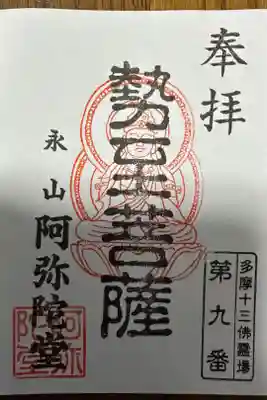 奉拝
多摩十三佛霊場
第九番
勢至菩薩
永山
阿弥陀堂
阿弥
陀堂